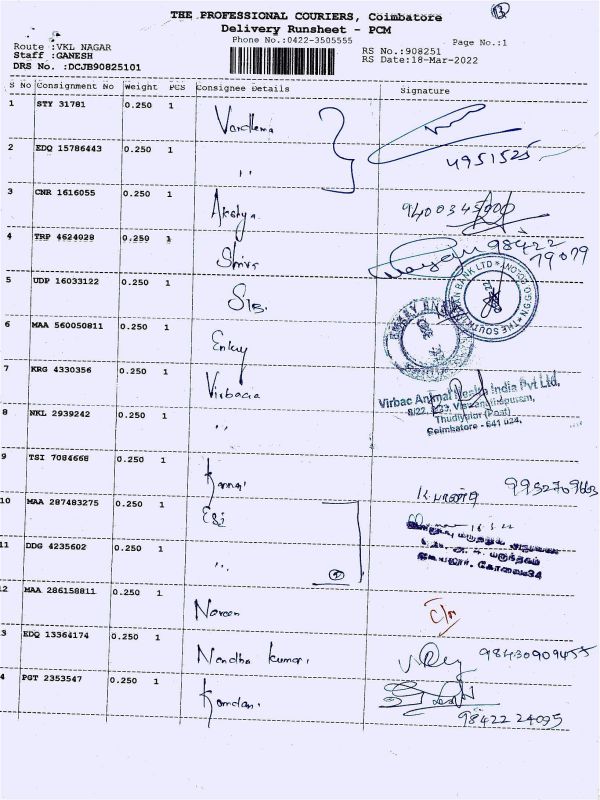 13
THE PROFESSIONAL COURIERS, Coimbatore
Delivery Runsheet - PCM
Phone No.:0422-3505555
Page No.:1
Route :VKL NAGAR
Staff :GANESH
DRS No. :DCJB90825101
RS No.:908251
RS Date:18-Mar-2022
S No Consignment No Weight PCS Consignee Details Signature
1 STY 31781 0.250 1 Vardhema
2 EDQ 15786443 0.250 1 ,, 4951525
3 CNR 1616055 0.250 1 Akshya 9400345000
4 TRP 4624028 0.250 1 Shiva 98422
79079
5 UDP 16033122 0.250 1 SIB.
THE SOUTH INDIAN BANK LTD
6 MAA 560050811 0.250 1 Enkay
7 KRG 4330356 0.250 1 Virbacia
Virbac Animal Health India Pvt Ltd,
Thudiyalur (Post)
Coimbatore - 641 024.
8 NKL 2939242 0.250 1 ,,
9 TSI 7084668 0.250 1 Kannai 9952709663
10 MAA 287483275 0.250 1 ESI
11 DDG 4235602 0.250 1 ,,
12 MAA 286158811 0.250 1 Naveen C/M
3 EDQ 13364174 0.250 1 Nandha Kumar. 98430909455
4 PGT 2353547 0.250 1 Kamdani
98422 24095